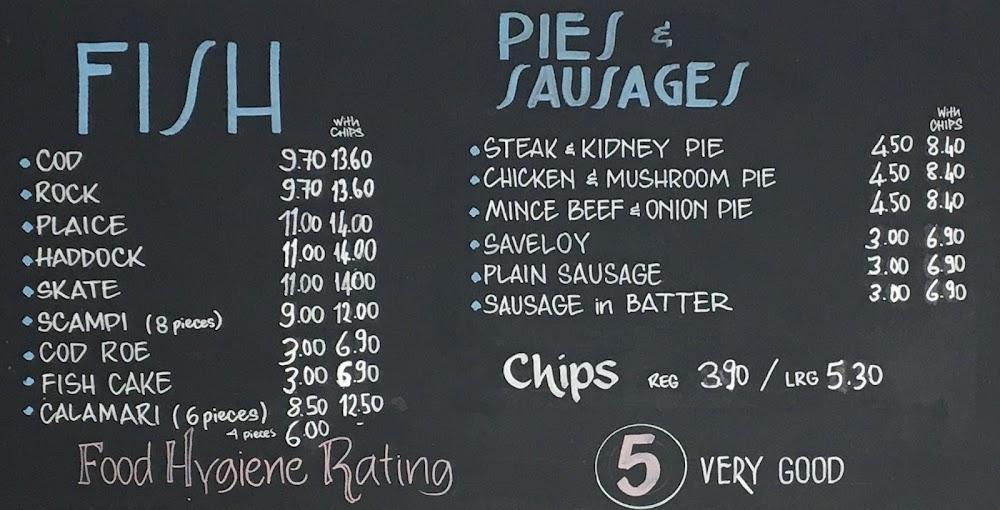 FISH
With CHIPS
COD 9.70 13.60
ROCK 9.70 13.60
PLAICE 11.00 14.00
HADDOCK 11.00 14.00
SKATE 11.00 1400
SCAMPI (8 pieces) 9.00 12.00
COD ROE 3.00 6.90
FISH CAKE 3.00 6.90
CALAMARI (6 pieces) 8.50 12.50
4 pieces 6.00 -
PIES &
SAUSAGES
With CHIPS
STEAK & KIDNEY PIE 4.50 8.40
CHICKEN & MUSHROOM PIE 4.50 8.40
MINCE BEEF & ONION PIE 4.50 8.40
SAVELOY 3.00 6.90
PLAIN SAUSAGE 3.00 6.90
SAUSAGE in BATTER 3.00 6.90
Chips REG 3.90 / LRG 5.30
Food Hygiene Rating 5 VERY GOOD